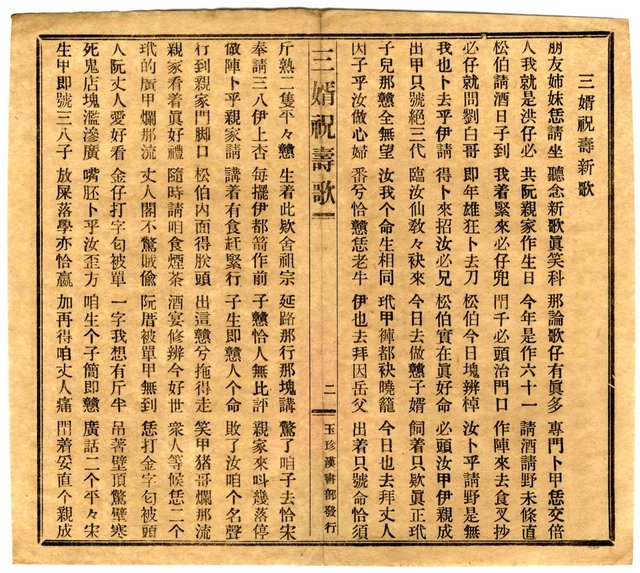 三婿祝壽新歌
朋友姊妹恁請坐 聽念新歌眞笑科 那論歌仔有眞多 專門卜甲恁交倍
人我就是洪仔必 共阮親家作生日 今年是作六十一 請酒請野未條直
松伯請酒日子到 我着緊來必仔兜 門千必頭治門口 作陣來去食叉抄
必仔就問劉白哥 即年雄狂卜去刀 松伯今日塊辨棹 汝卜乎請野是無
我也卜去乎伊請 得卜來招汝必兄 松伯實在眞好命 必頭汝甲伊親成
出甲只號絕三代 臨汝仙敎々袂來 今日去做戇子婿 飼着只欵眞正玳
子兒那戇全無望 汝我个命生相同 玳甲褲都袂曉籠 今日也去拜丈人
因子乎汝做心婦 番兮恰戇恁老牛 伊也去拜因岳父 出着只號命恰須
三婿祝壽歌 二 玉珍漢書部發行
斤熟二隻平々戇 生着此欵舍祖宗 延路那行那塊講 驚了咱子去恰宋
奉請三八伊上杏 每擺伊都箭作前 子戇恰人無比評 親家來呌幾落停
傚陣卜乎親家請 講着有食赶緊行 子生即戇人个命 敗了汝咱个名聲
行到親家門脚口 松伯內面得朘頭 出這戇兮拖得走 笑甲猪哥爛那流
親家看着眞好禮 隨時請咱食煙茶 酒宴修辨今好世 衆人等候恁二个
玳的廣甲爛那流 丈人閣不驚賊偷 阮厝被單甲無到 恁打金字匂被頭
人阮丈人愛好看 金仔打字匂被單 一字我想有斤半 吊著壁頂驚壁寒
死鬼店塊濫滲廣 嘴胚卜乎汝歪方 咱生个子簡即戇 廣話二个平々宋
生甲即號三八子 放屎落學亦恰贏 加再得咱丈人痛 門着妥直个親成